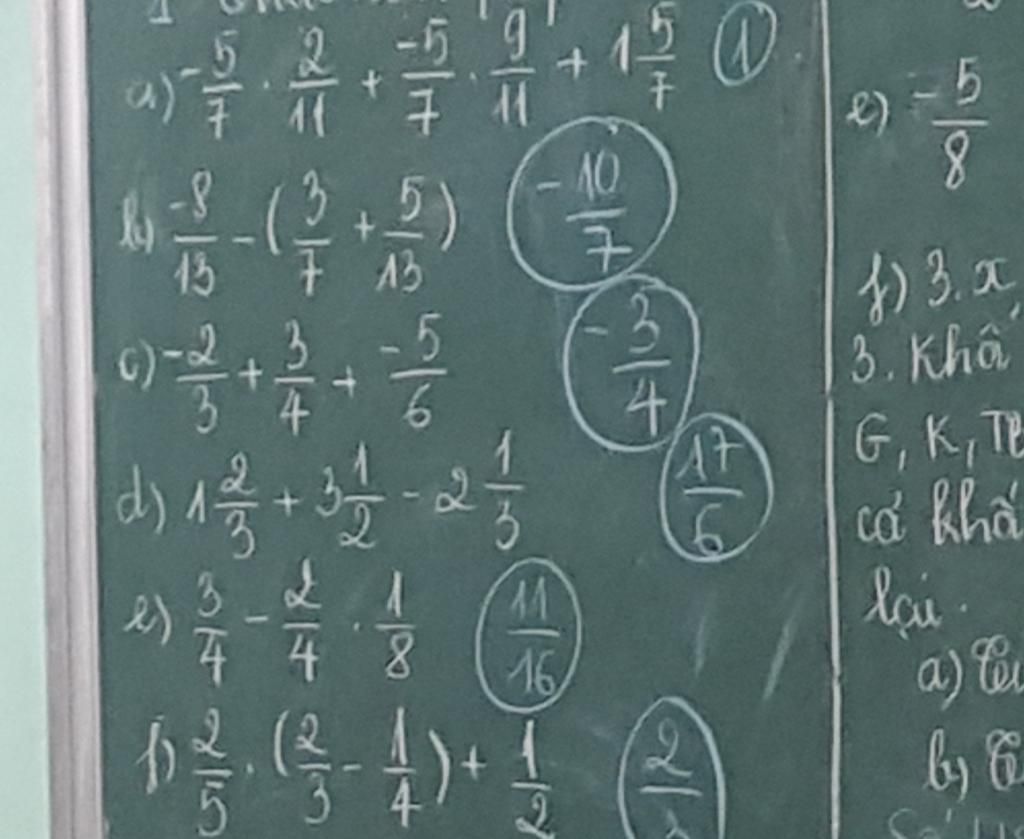 a) -5/7 . 2/11 + -5/7 . 9/11 + 1 5/7 1
b) -8/13 - (3/7 + 5/13) -10/7
c) -2/3 + 3/4 + -5/6 -3/4
d) 1 2/3 + 3 1/2 - 2 1/3 17/6
e) 3/4 - 2/4 . 1/8 11/16
f) 2/5 . (2/3 - 1/4) + 1/2 2/
e) -5/8
f) 3.x
3. Khố
G, K, TB
cả khố
lại.
a)
b)